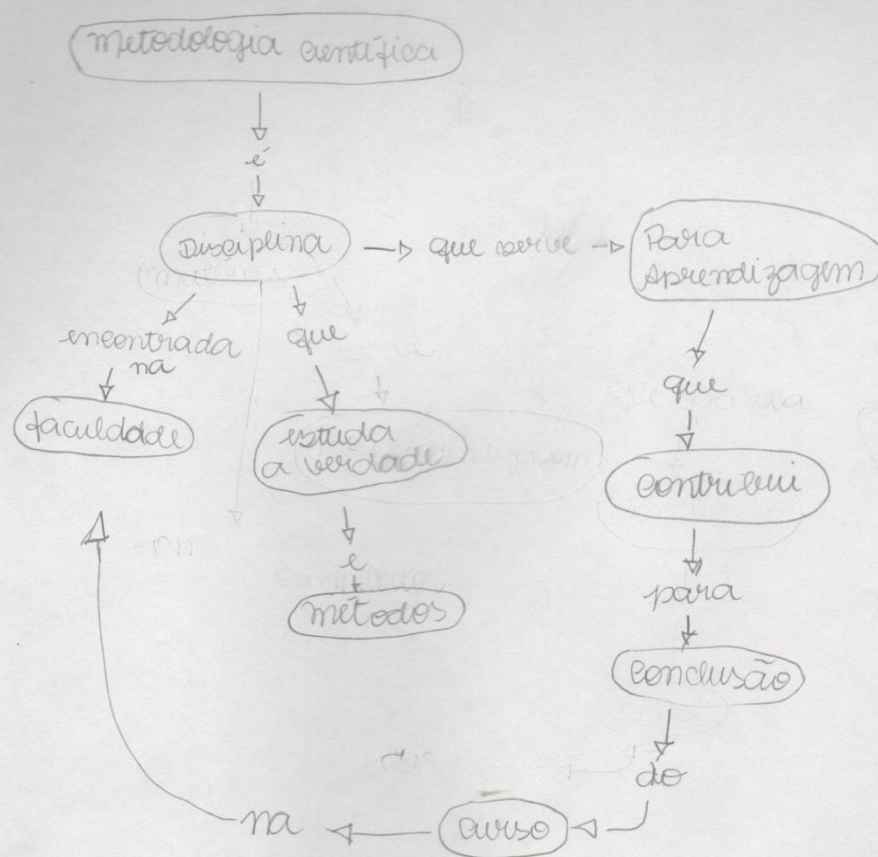 metodologia científica
é
Disciplina
que serve
Para
Aprendizagem
encontrada
na
faculdade
que
estuda
a verdade
e
métodos
que
contribui
para
conclusão
do
curso
na